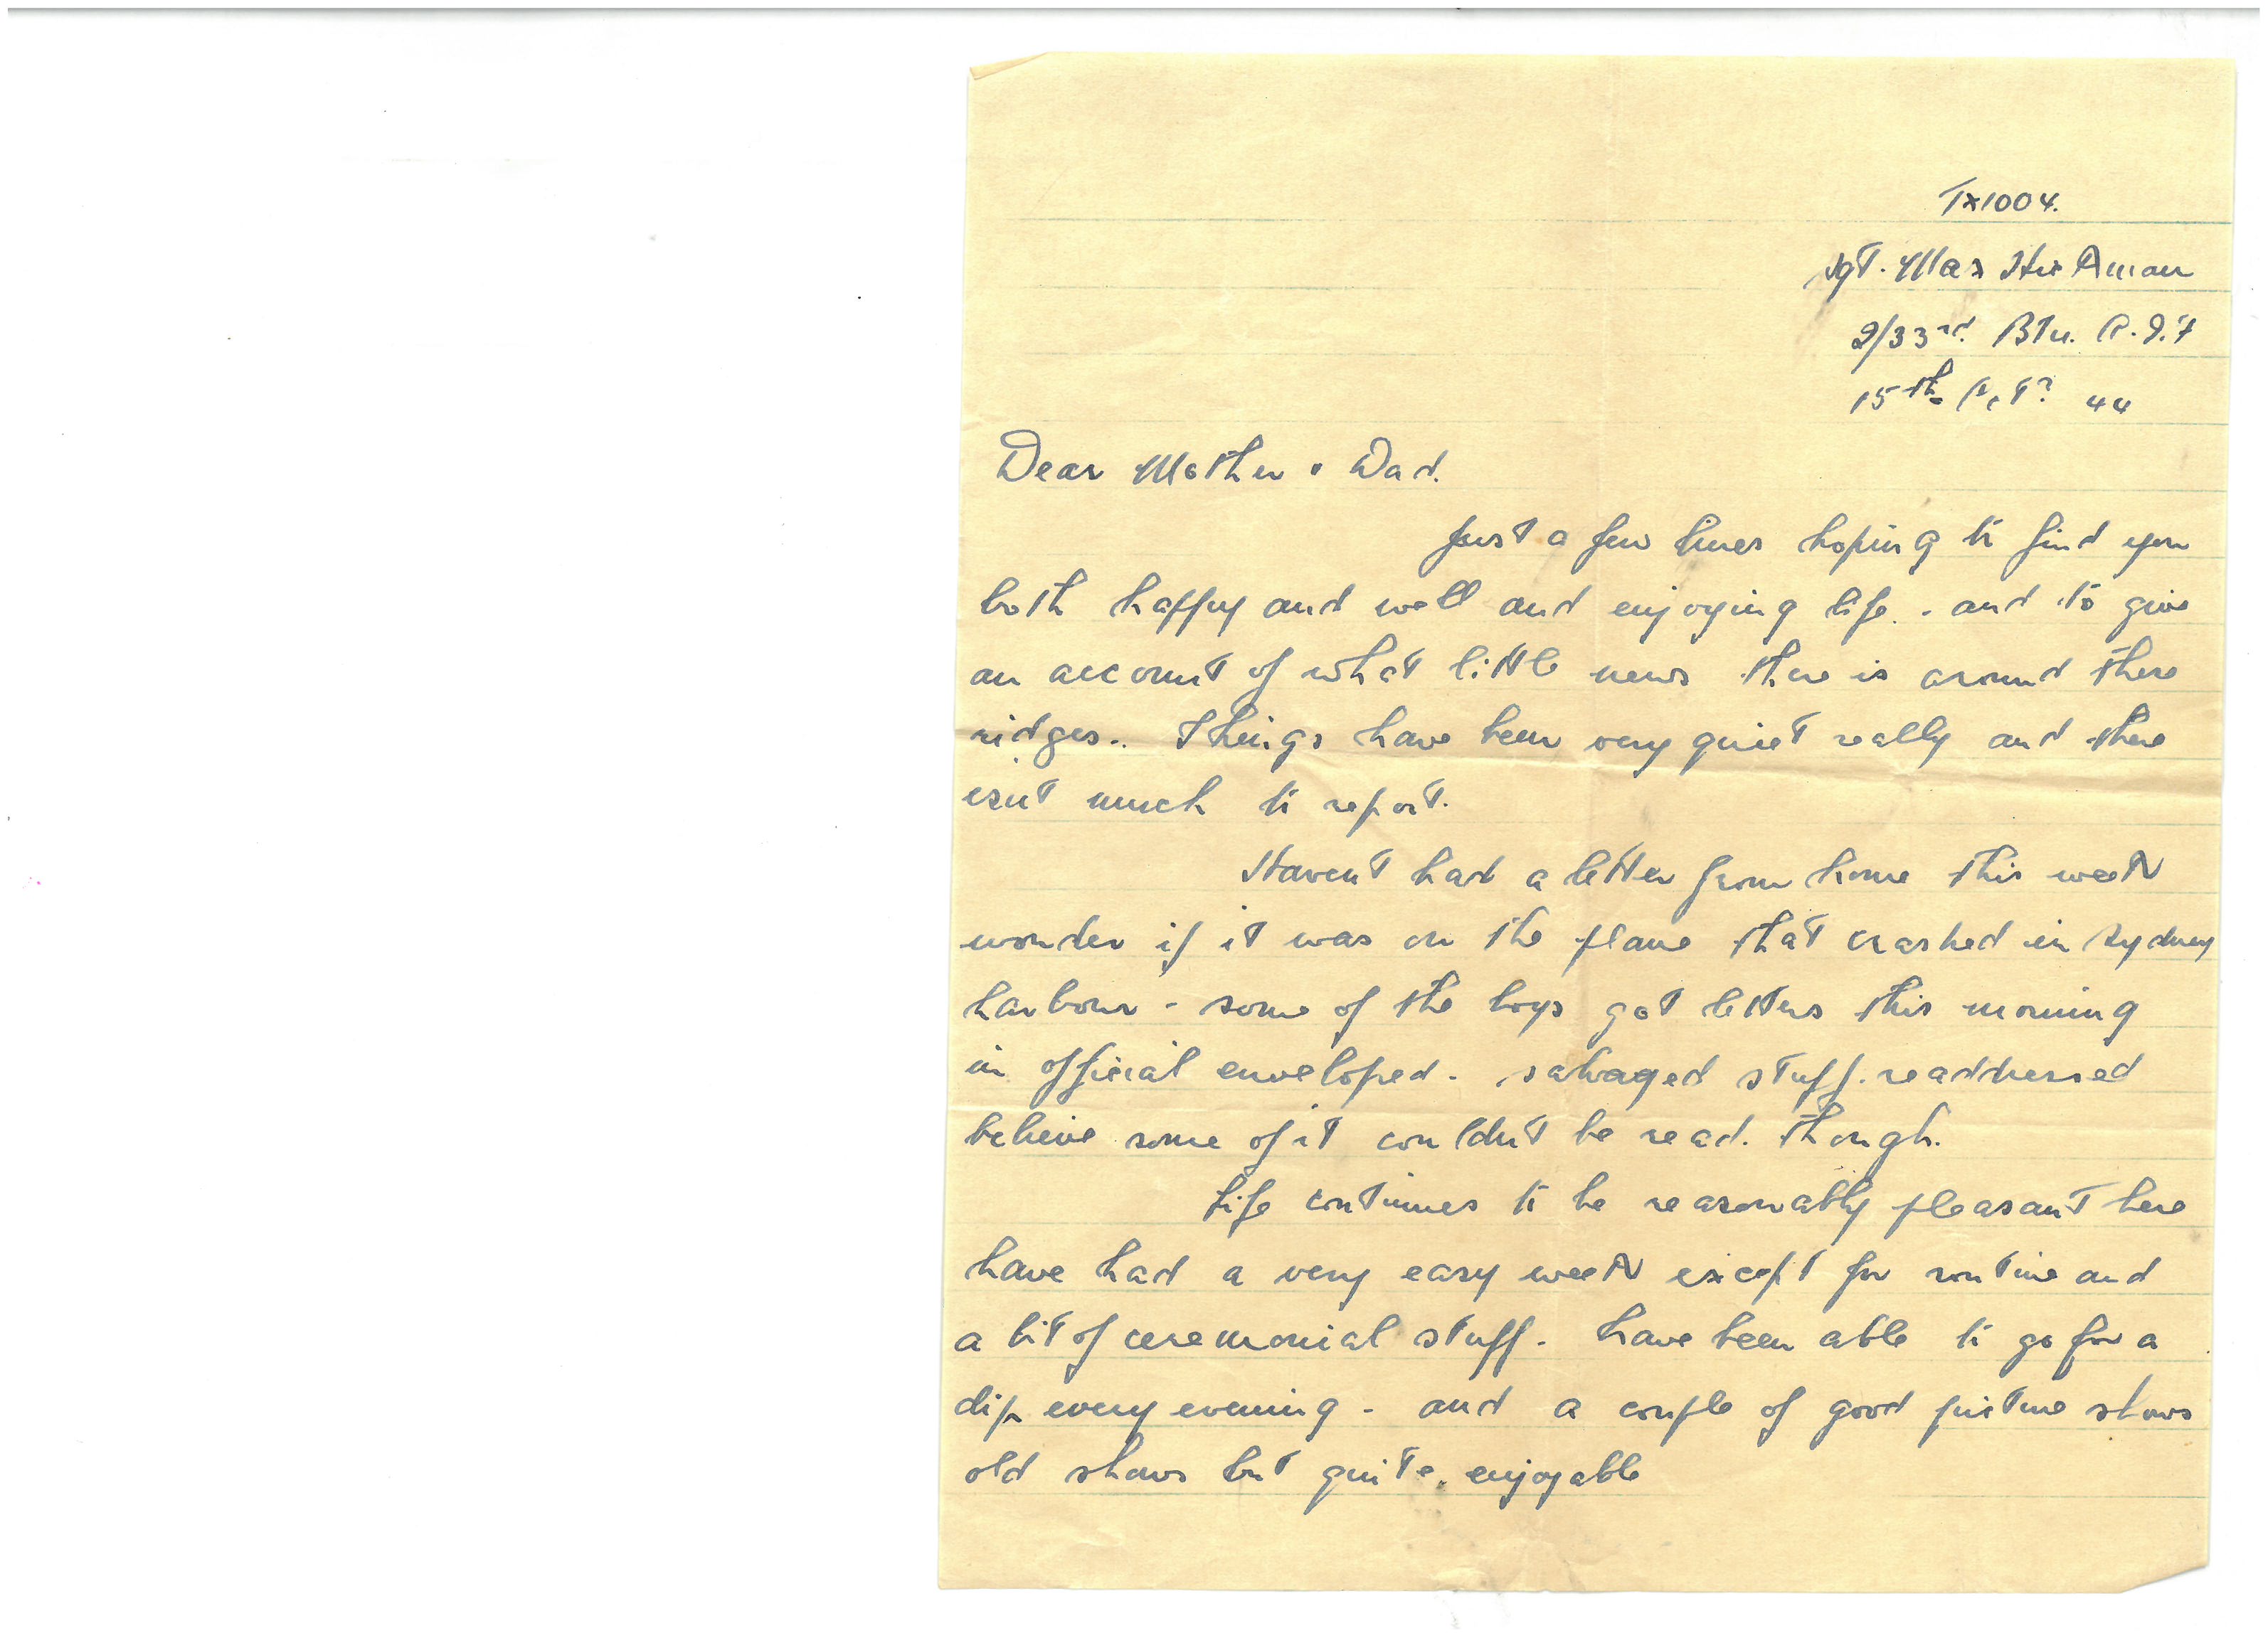 TX1004.
Sgt. Max Hickman
2/33rd. Btn. A.I.F
15th Oct? 44
Dear Mother & Dad.
Just a few lines hoping to find you
both happy and well and enjoying life. - and to give
an account of what little news there is around these
ridges.. Things have been very quiet really and there
isnt much to report.
Havent had a letter from home this week
wonder if it was on the plane that crashed in Sydney
harbour - some of the boys got letters this morning
in official enveloped - salvaged stuff. readdressed
believe some of it couldnt be read. though.
Life continues to be reasonably pleasant here
have had a very easy week except for routine and
a bit of ceremonial stuff. have been able to go for a
dip every evening - and a couple of good picture shows
old shows but quite enjoyable